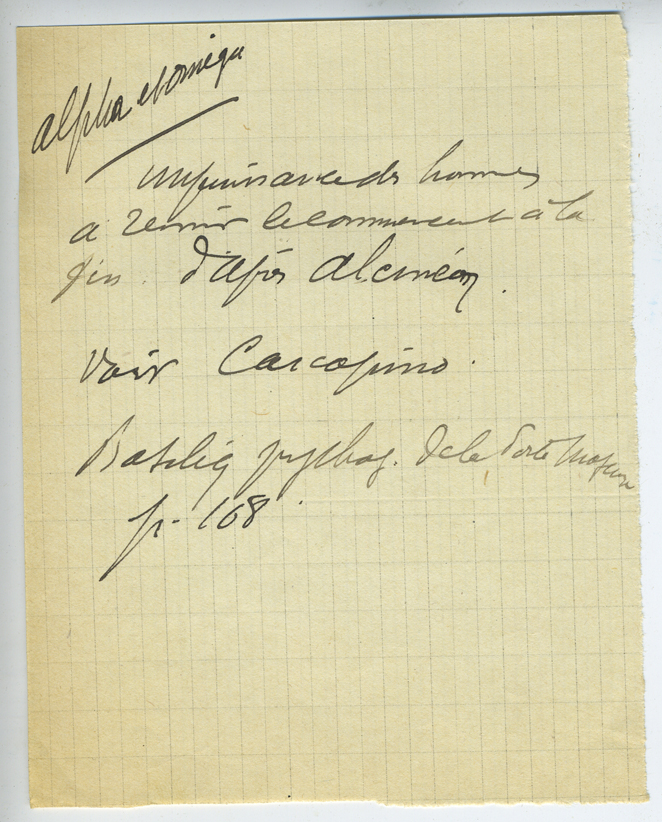 alpha et omega
impuissance des hommes
a reunir le commencement à la
fin. d'après Alcméon.
Voir Carcopino.
Basiliq pythag. de la Porte Majeure
p. 168